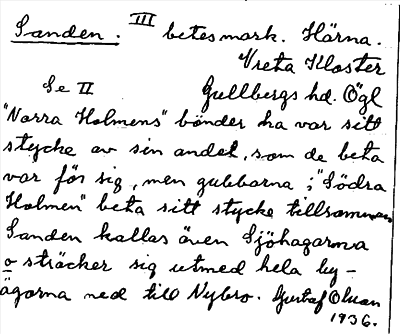 Sanden. III betesmark. Härna.
Vreta Kloster
Se II Gullbergs hd. Ögl
"Norra Holmens" bönder ha var sitt
stycke av sin andel, som de beta
var för sig, men gubbarna i "Södra
Holmen" beta sitt stycke tillsammans
Sanden kallas även Sjöhagarna
o sträcker sig utmed hela by-
ägorna ned till Nybro. Gustaf Olsson
1936.